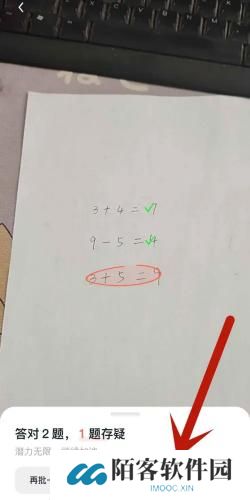 3+4=7
9-5=4
3+5=9
答对2题，1题存疑
潜力无限
再批
陌客软件园
IMOOC.XIN